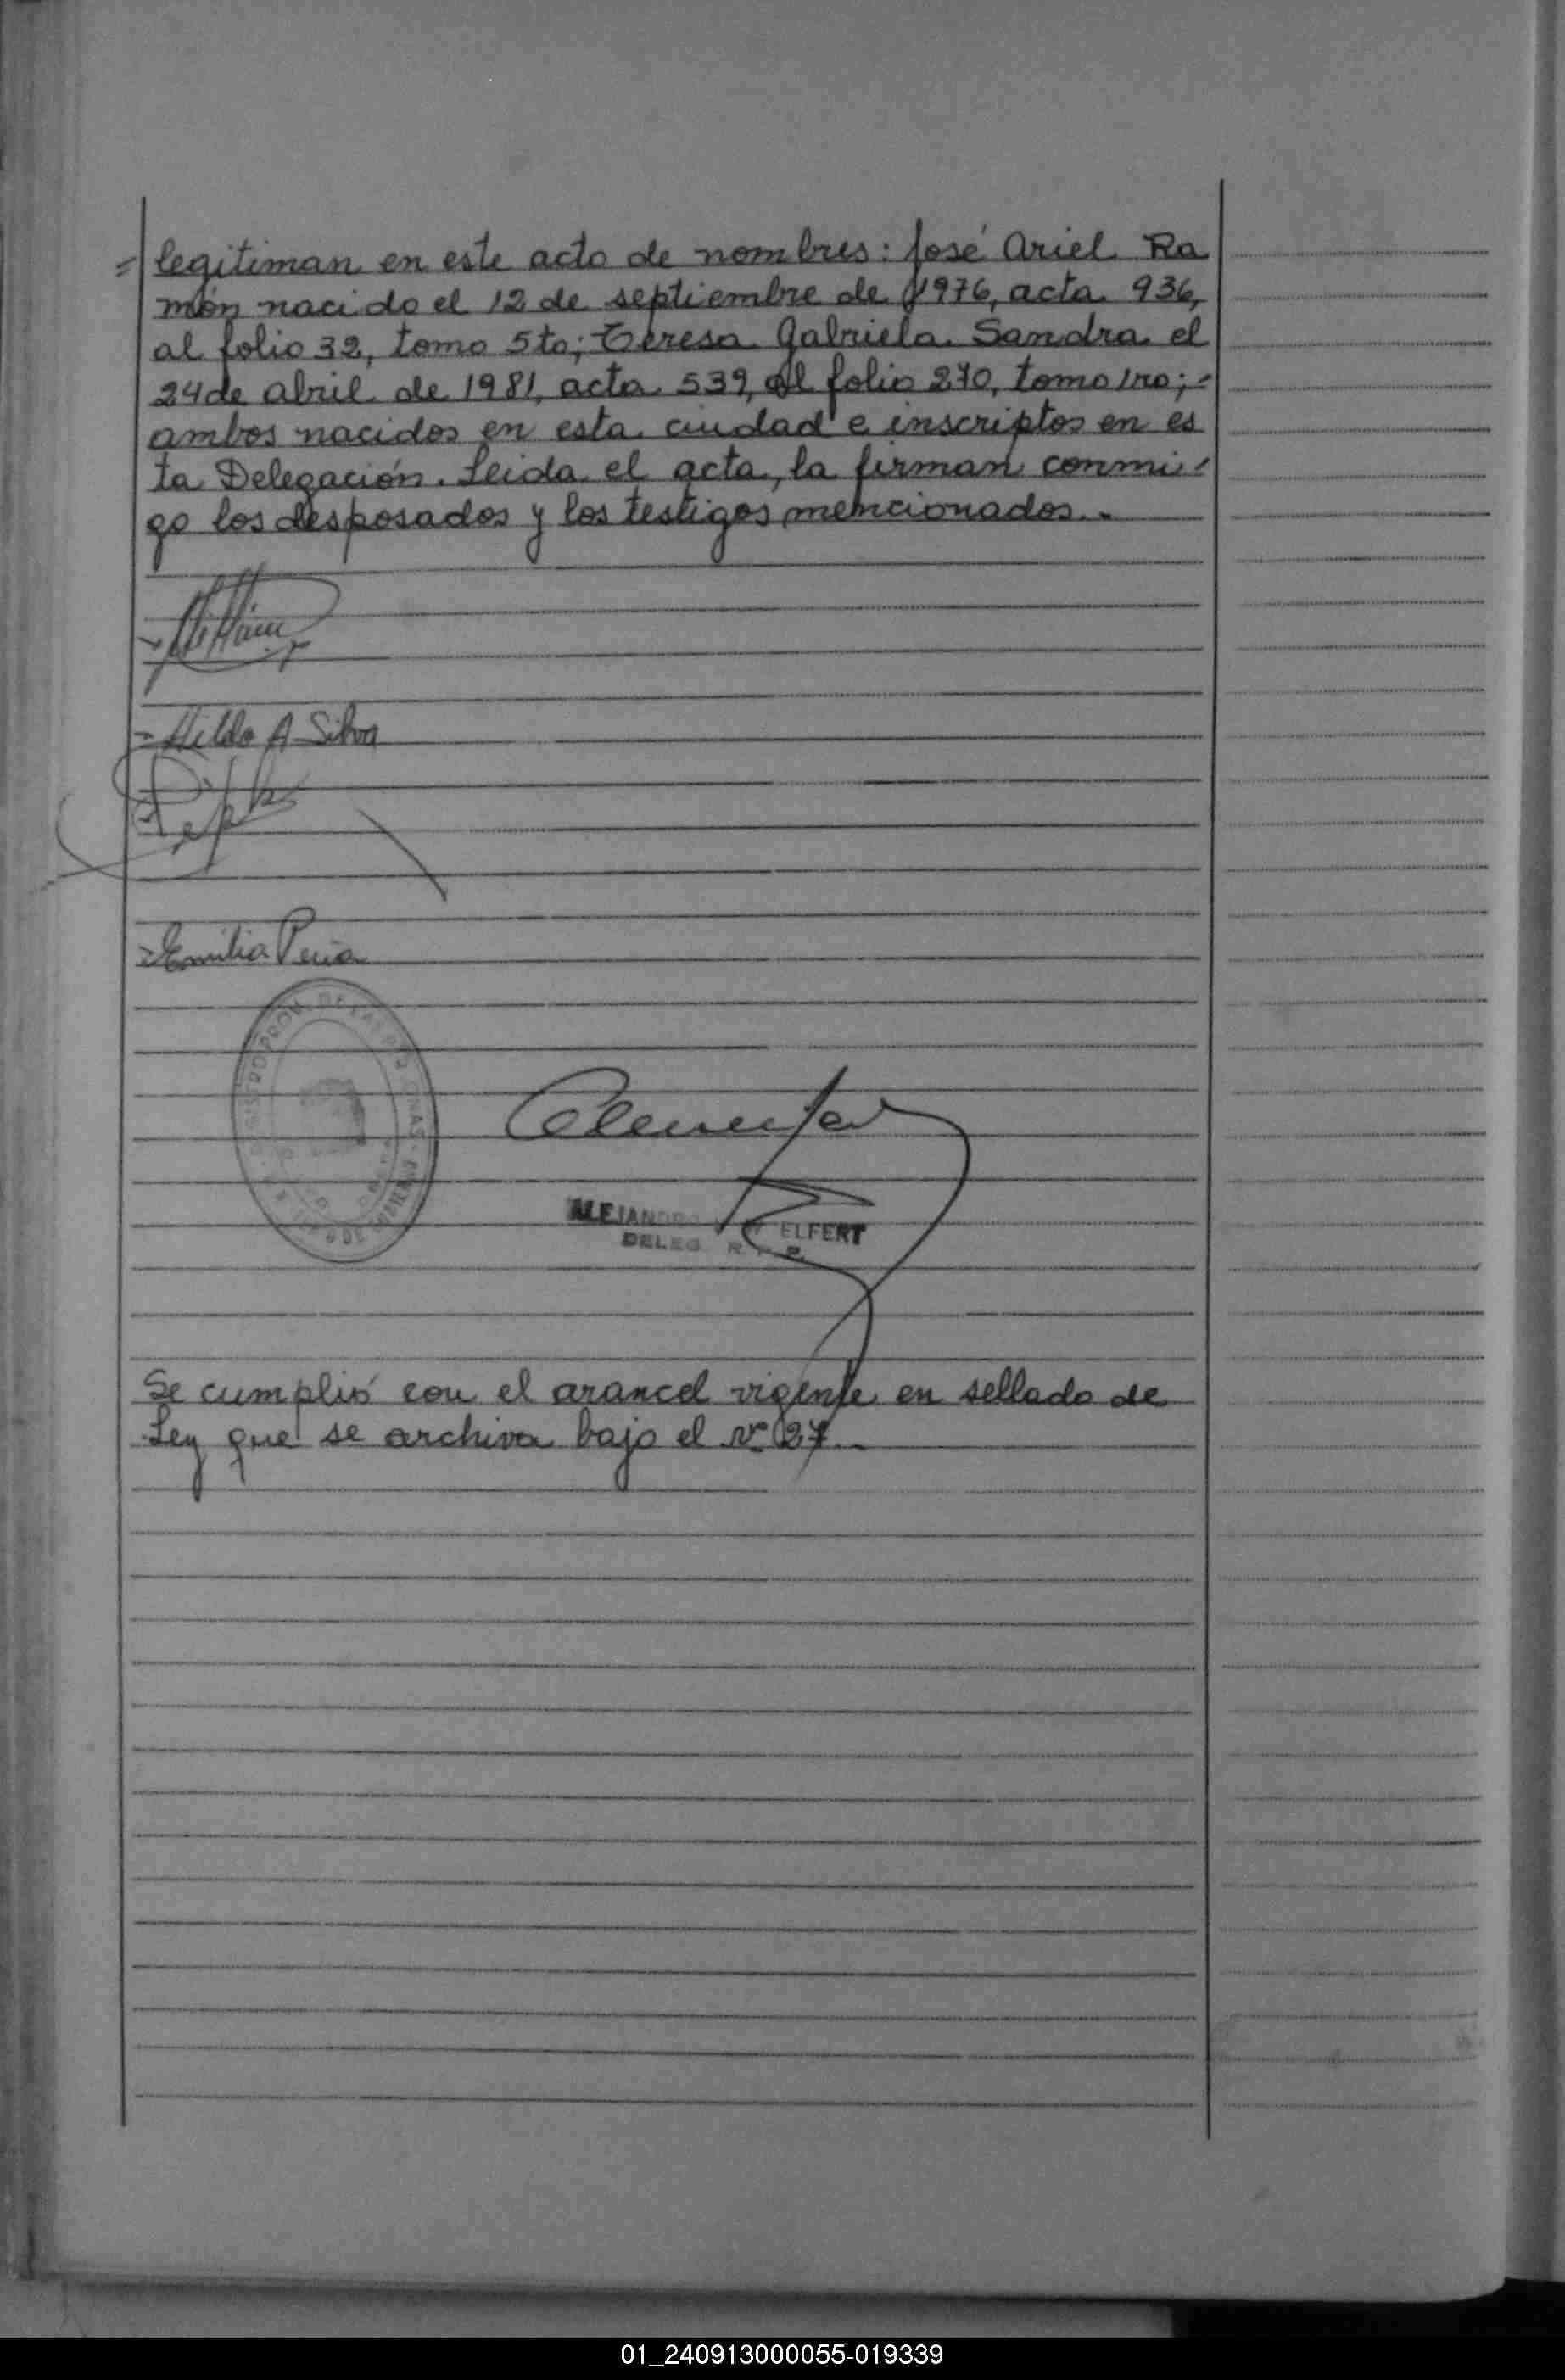 = legitiman en este acto de nombres: José Ariel Ra
món nacido el 12 de septiembre de 1976, acta 936,
al folio 32, tomo 5to; Teresa Gabriela Sandra el
24 de abril de 1981, acta 539, al folio 270, tomo 1ro; =
ambos nacidos en esta ciudad e inscriptos en es
ta Delegación. Leida el acta, la firman conmi=
go los desposados y los testigos mencionados.-
= Hilda A Silva
= Emilia Peña
ALEJANDRO ELFERT
DELEG. R. P. P.
Se cumplió con el arancel vigente en sellado de
Ley que se archiva bajo el Nº 27.-
01_240913000055-019339